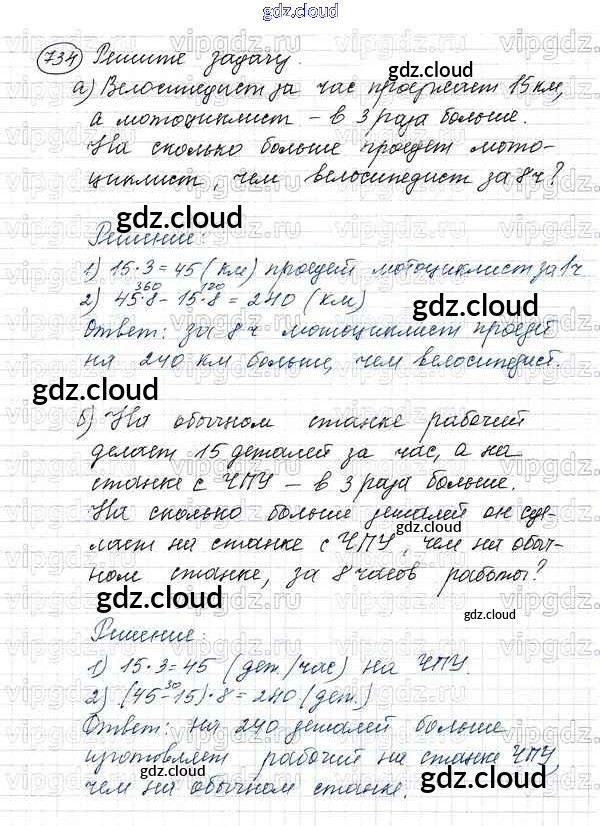 gdz.cloud
734 Решите задачу.
а) Велосипедист за час проезжает 15 км,
а мотоциклист – в 3 раза больше.
На сколько больше проедет мото-
циклист, чем велосипедист за 8 ч?
Решение:
1) 15·3=45 (км) проедет мотоциклист за 1ч
360 120
2) 45·8-15·8=240 (км)
Ответ: за 8 ч мотоциклист проедет
на 240 км больше, чем велосипедист.
б) На обычном станке рабочий
делает 15 деталей за час, а на
станке с ЧПУ – в 3 раза больше.
На сколько больше деталей он сде-
лает на станке с ЧПУ, чем на обыч-
ном станке, за 8 часов работы?
Решение:
1) 15·3=45 (дет./час) на ЧПУ.
30
2) (45-15)·8=240 (дет.)
Ответ: на 240 деталей больше
изготовляет рабочий на станке ЧПУ,
чем на обычном станке.
gdz.cloud